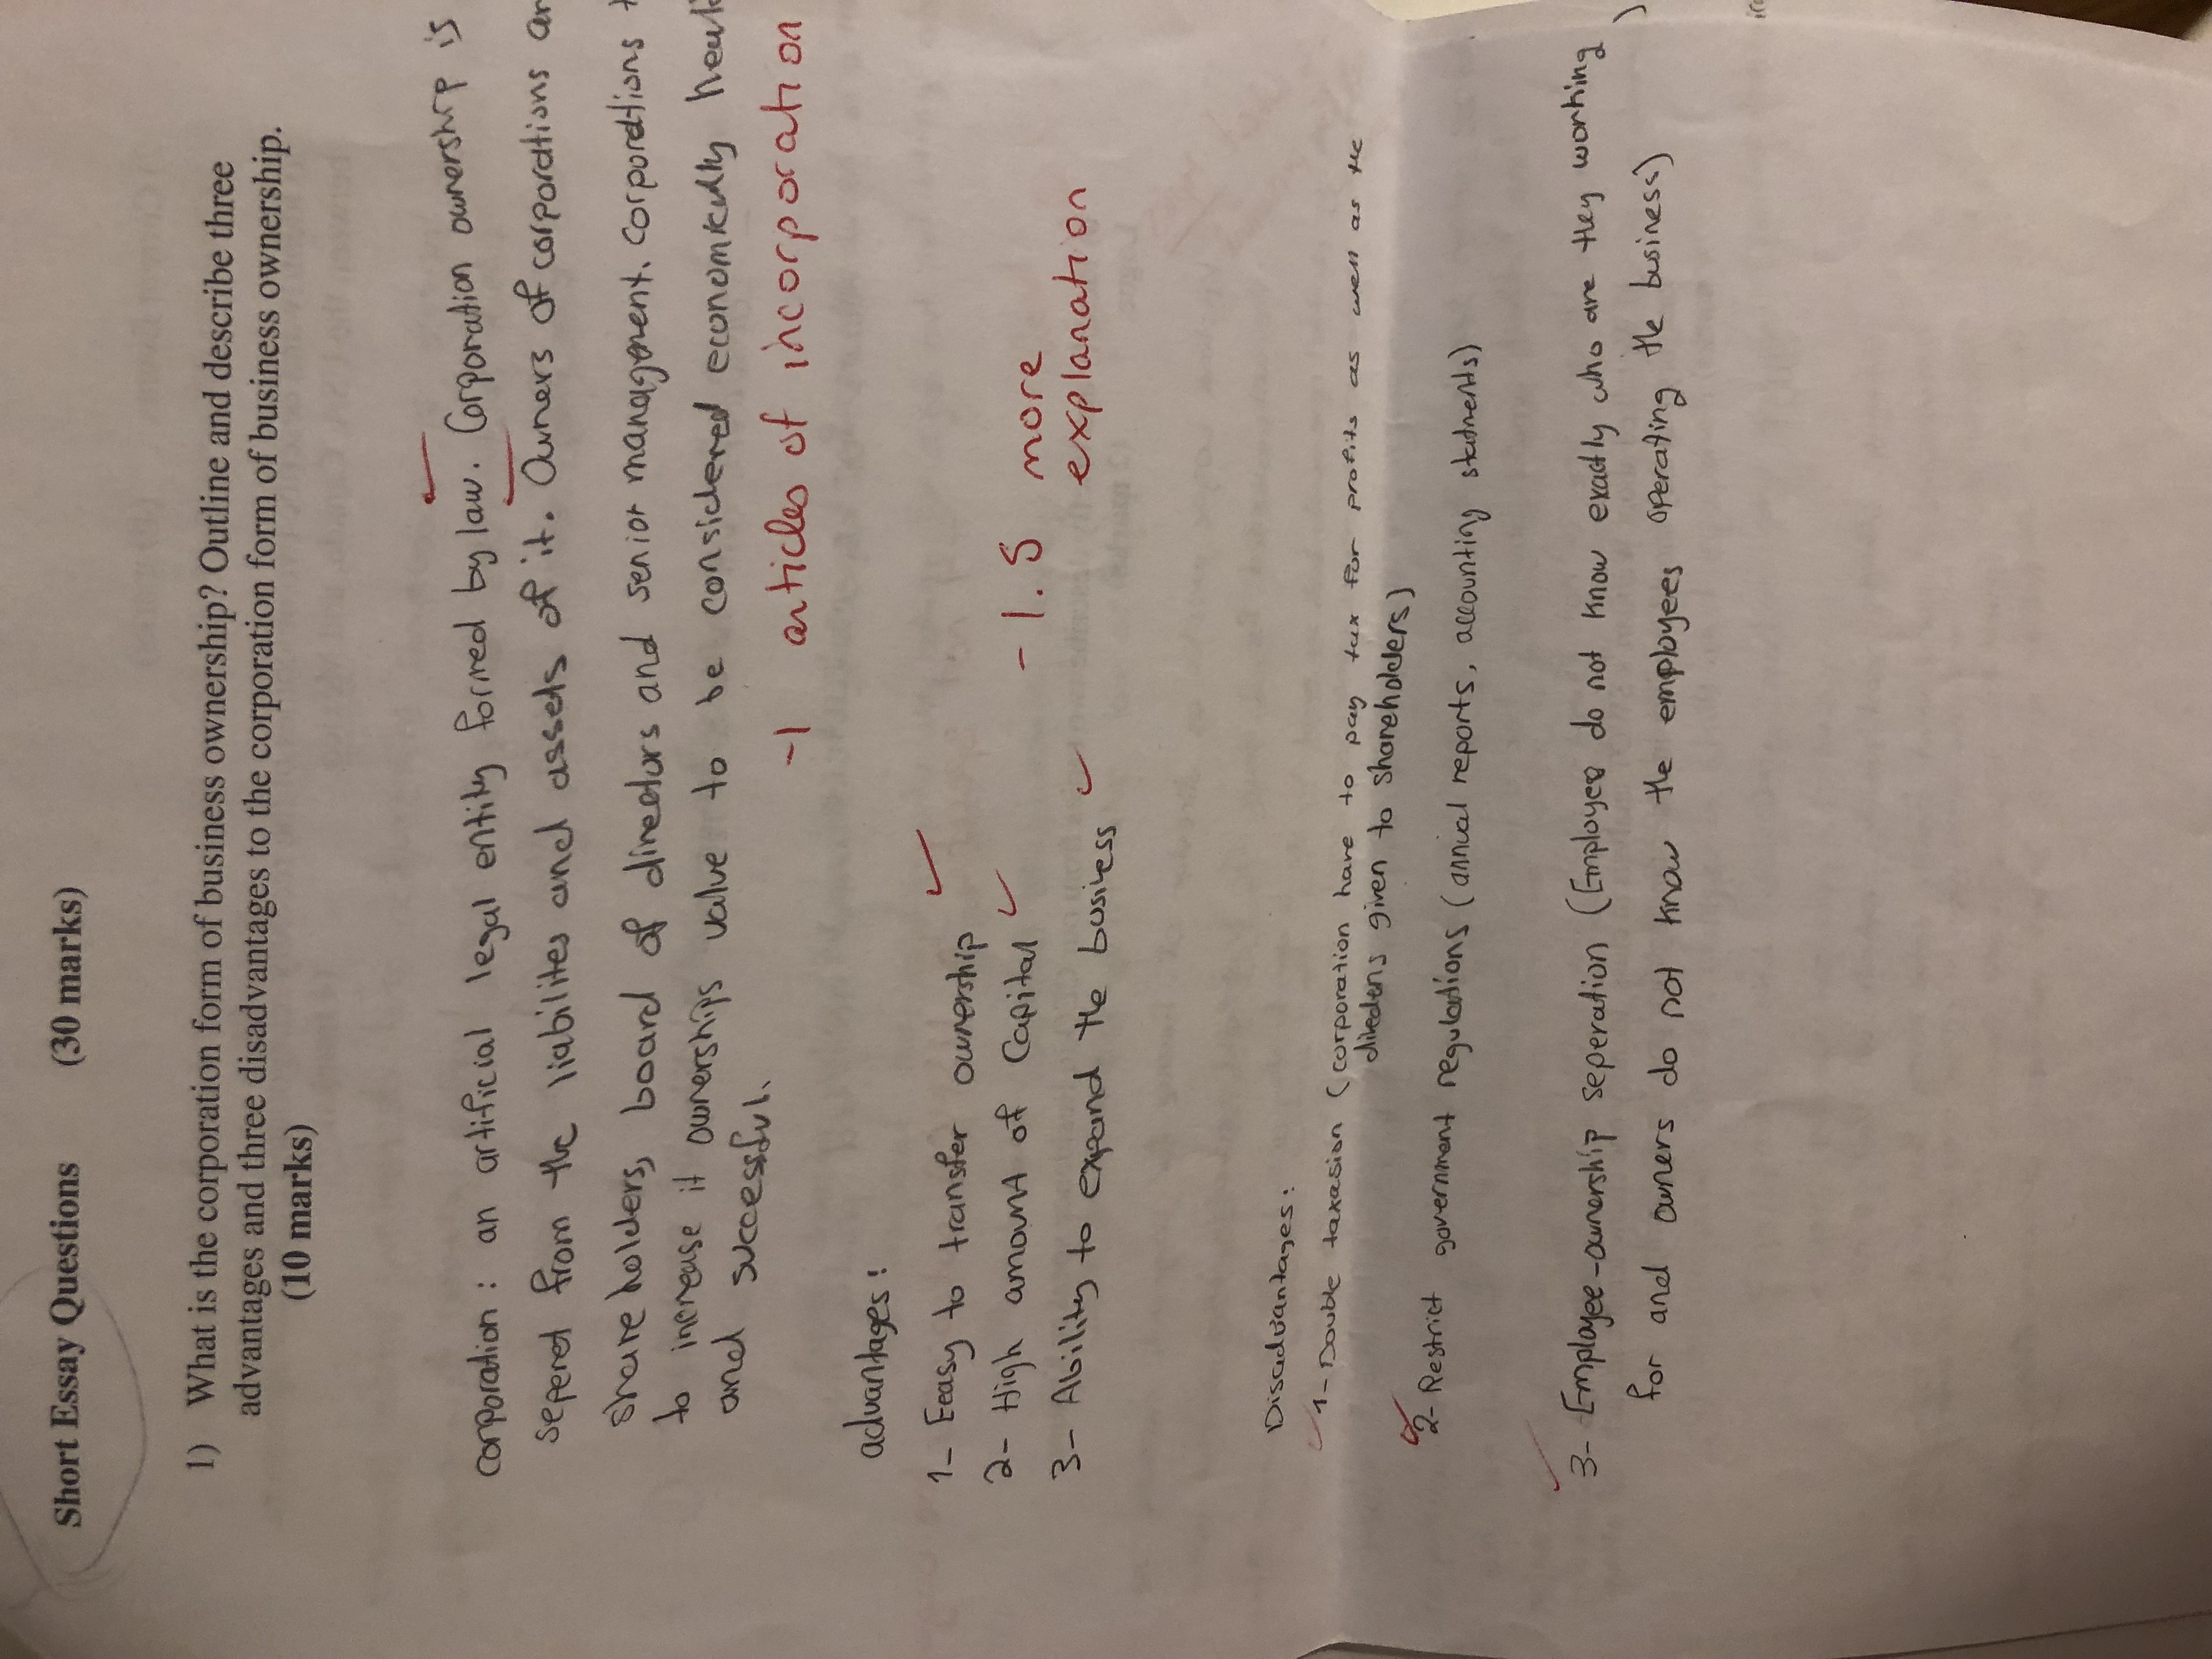 Short Essay Questions (30 marks)
1) What is the corporation form of business ownership? Outline and describe three
advantages and three disadvantages to the corporation form of business ownership.
(10 marks)
corporation : an artificial legal entity formed by law. Corporation ownership is
seperet from the liabilites and assets of it. Owners of corporations
share holders, board of directors and senior management. Corporations
to increase it ownerships value to be considered economically
and successful.
-1 articles of incorporation
advantages:
1- Eeasy to transfer ownership
2- High amount of Capital
3- Ability to expand the business
-1.5 more
explanation
Disadvantages:
1- Double taxasion (corporation have to pay tax for profits as well as the
given to shareholders)
2- Restrict government regulations (annual reports, accounting statments)
3- Employee-ownership seperation (Employee do not know exactly who are they working
for and owners do not know the employees operating the business)